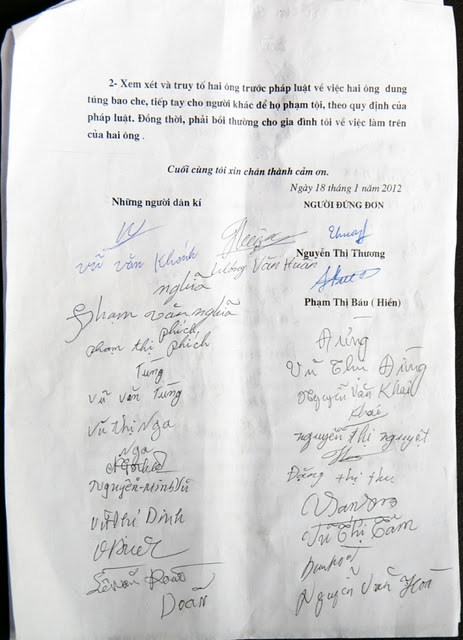 2- Xem xét và truy tố hai ông trước pháp luật về việc hai ông dung
túng bao che, tiếp tay cho người khác để họ phạm tội, theo quy định của
pháp luật. Đồng thời, phải bồi thường cho gia đình tôi về việc làm trên
của hai ông .
Cuối cùng tôi xin chân thành cảm ơn.
Ngày 18 tháng 1 năm 2012
Những người dân kí
NGƯỜI ĐỨNG ĐƠN
Thương
Nguyễn Thị Thương
Phạm Thị Báu ( Hiền)
Vũ Văn Khánh
Lương Văn Huấn
nghĩa
phạm văn nghĩa
phích
phạm thị phích
Tùng
Vũ Văn Tùng
Vũ Thị Nga
Nga
Nguyễn Minh Vũ
Vũ Thị Dinh
Doãn
Vũ Thu
Nguyễn Văn Khai
Khai
nguyễn thị nguyệt
Đặng thị thu
Vũ Thị Tằm
Nguyễn Văn